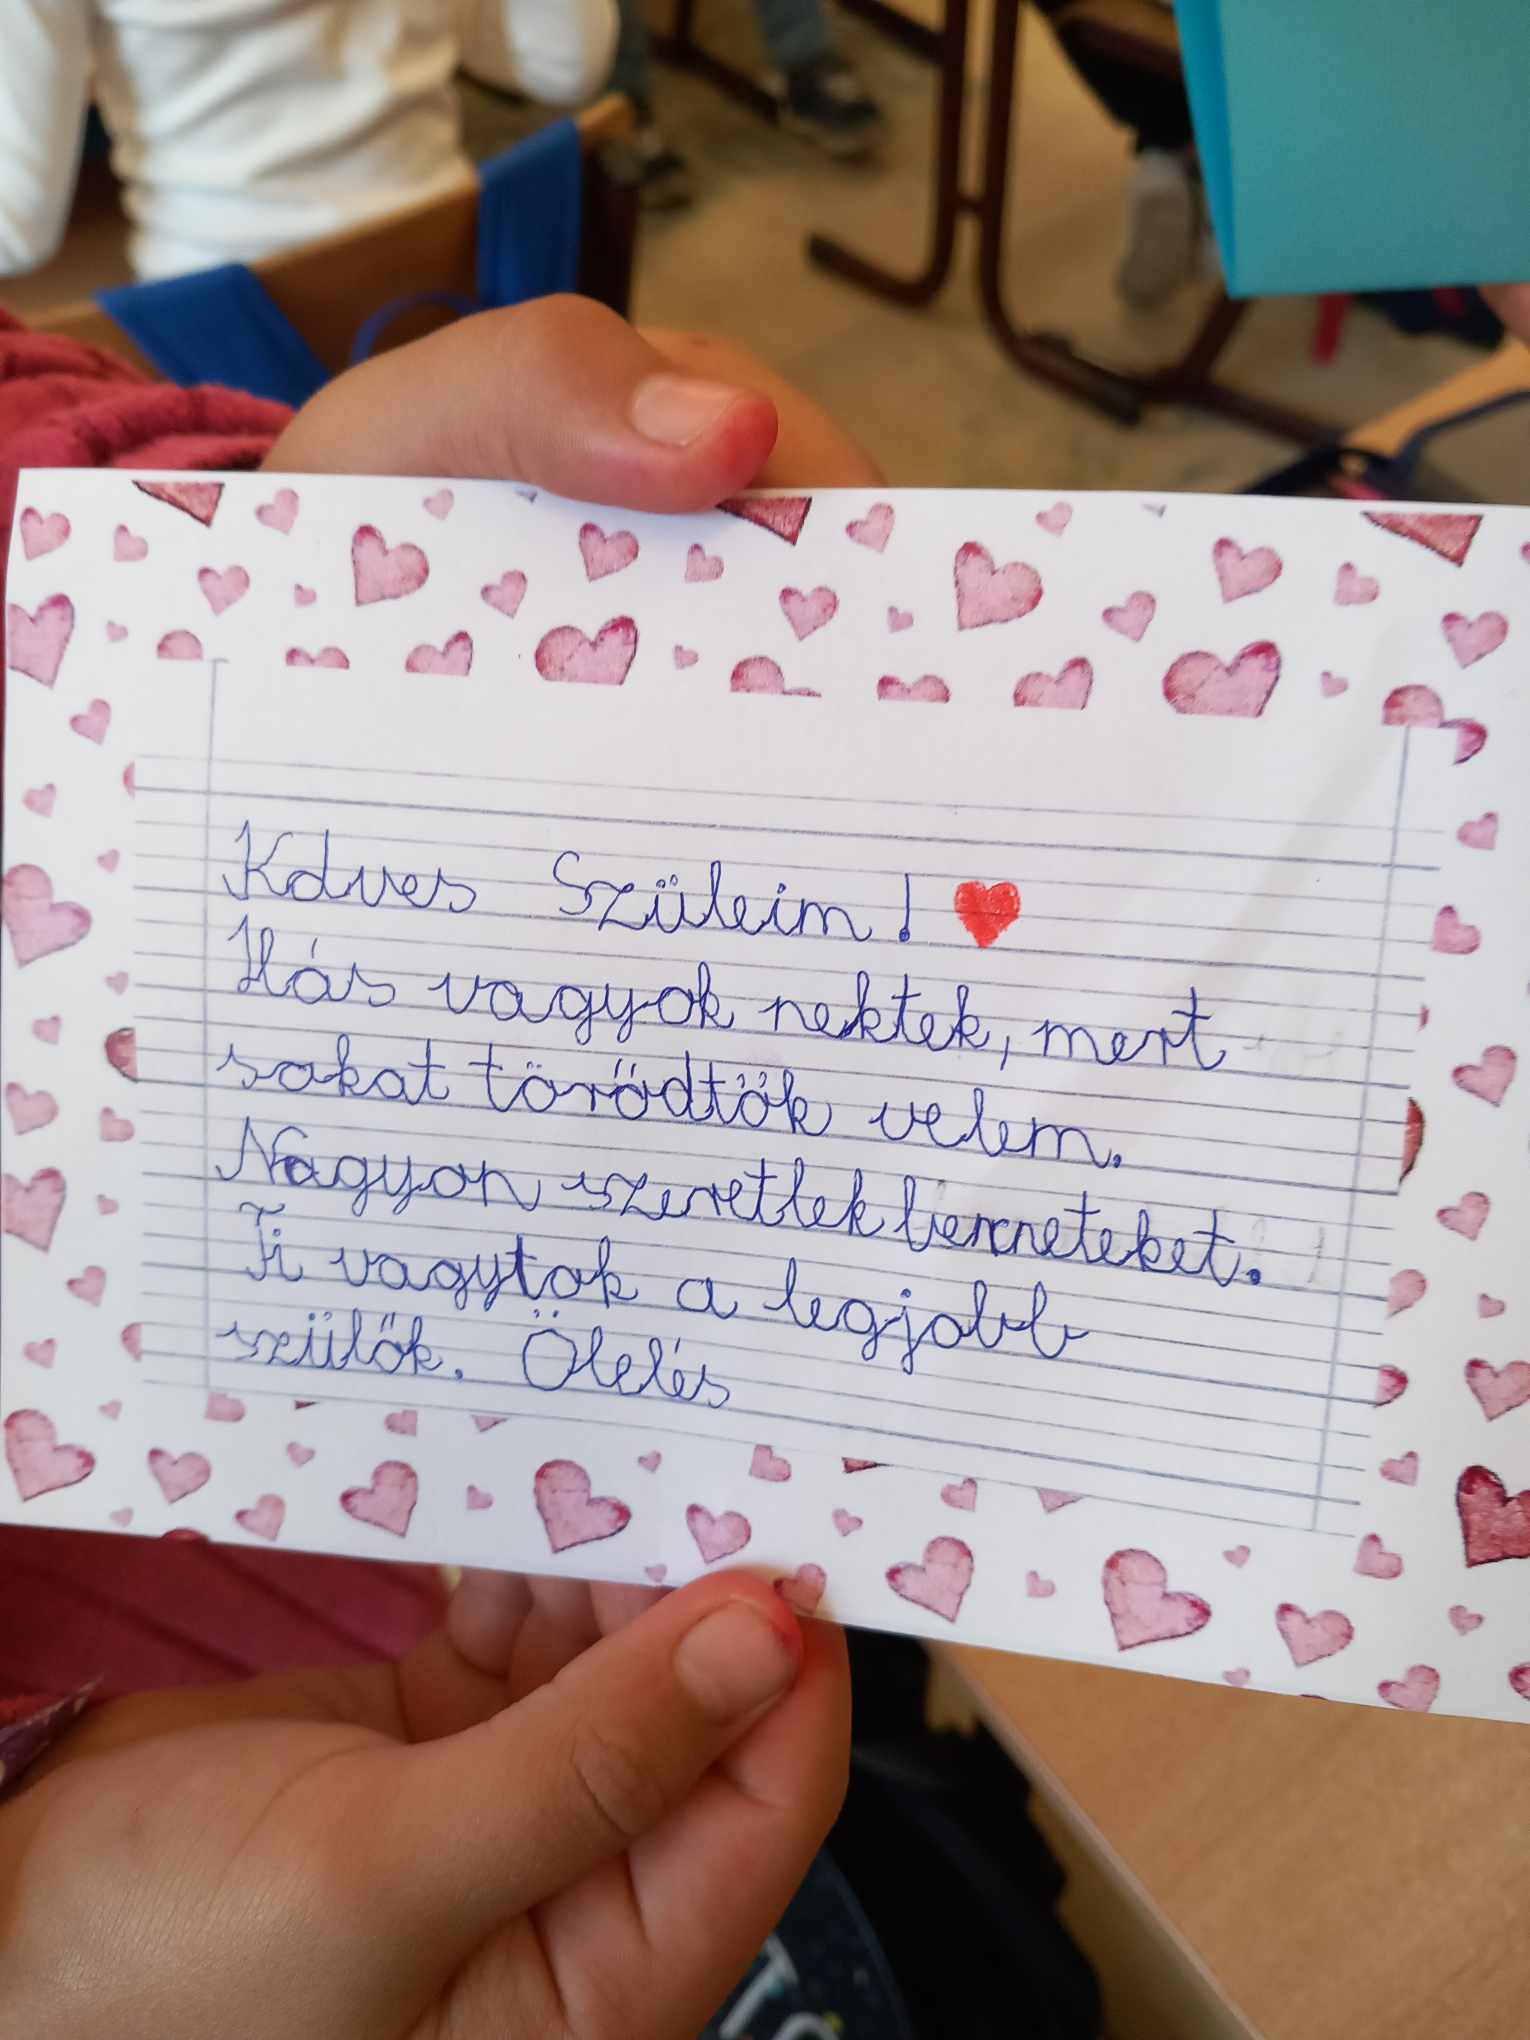 Kdves Szüleim!
Hás vagyok nektek, mert
sokat törödtök velem.
Nagyon szeretlek benneteket.
Ti vagytok a legjobb
szülők. Ölelés